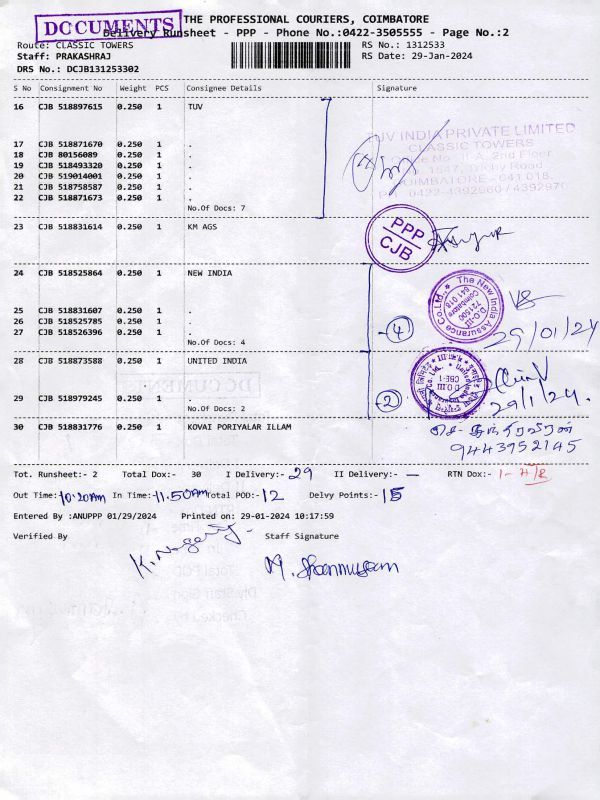 DOCUMENTS
THE PROFESSIONAL COURIERS, COIMBATORE
Delivery Runsheet - PPP - Phone No.:0422-3505555 - Page No.:2
Route: CLASSIC TOWERS RS No.: 1312533
Staff: PRAKASHRAJ RS Date: 29-Jan-2024
DRS No.: DCJB131253302
S No Consignment No Weight PCS Consignee Details Signature
16 CJB 518897615 0.250 1 TUV
INDIA PRIVATE LIMITED
CLASSIC TOWERS
17 CJB 518871670 0.250 1 .
18 CJB 80156089 0.250 1 .
2nd Floor
19 CJB 518493320 0.250 1 .
1547, Trichy Road
20 CJB 519014001 0.250 1 .
COIMBATORE - 641 018.
21 CJB 518758587 0.250 1 .
0422-4392960 / 4392970
22 CJB 518871673 0.250 1 .
No.Of Docs: 7
23 CJB 518831614 0.250 1 KM AGS
PPP
CJB
24 CJB 518525864 0.250 1 NEW INDIA
The New India Assurance Co. Ltd.
D.O.-III
721500
Coimbatore
641 018
25 CJB 518831607 0.250 1 .
26 CJB 518525785 0.250 1 .
27 CJB 518526396 0.250 1 .
4
29/01/24
No.Of Docs: 4
28 CJB 518873588 0.250 1 UNITED INDIA
29 CJB 518979245 0.250 1 .
2
29/1/24.
No.Of Docs: 2
30 CJB 518831776 0.250 1 KOVAI PORIYALAR ILLAM
9443952145
Tot. Runsheet:- 2 Total Dox:- 30 I Delivery:- 29 II Delivery:- — RTN Dox:- 1-
Out Time: 10:20Am In Time:- 11.50Am Total POD:- 12 Delvy Points:- 15
Entered By :ANUPPP 01/29/2024 Printed on: 29-01-2024 10:17:59
Verified By Staff Signature